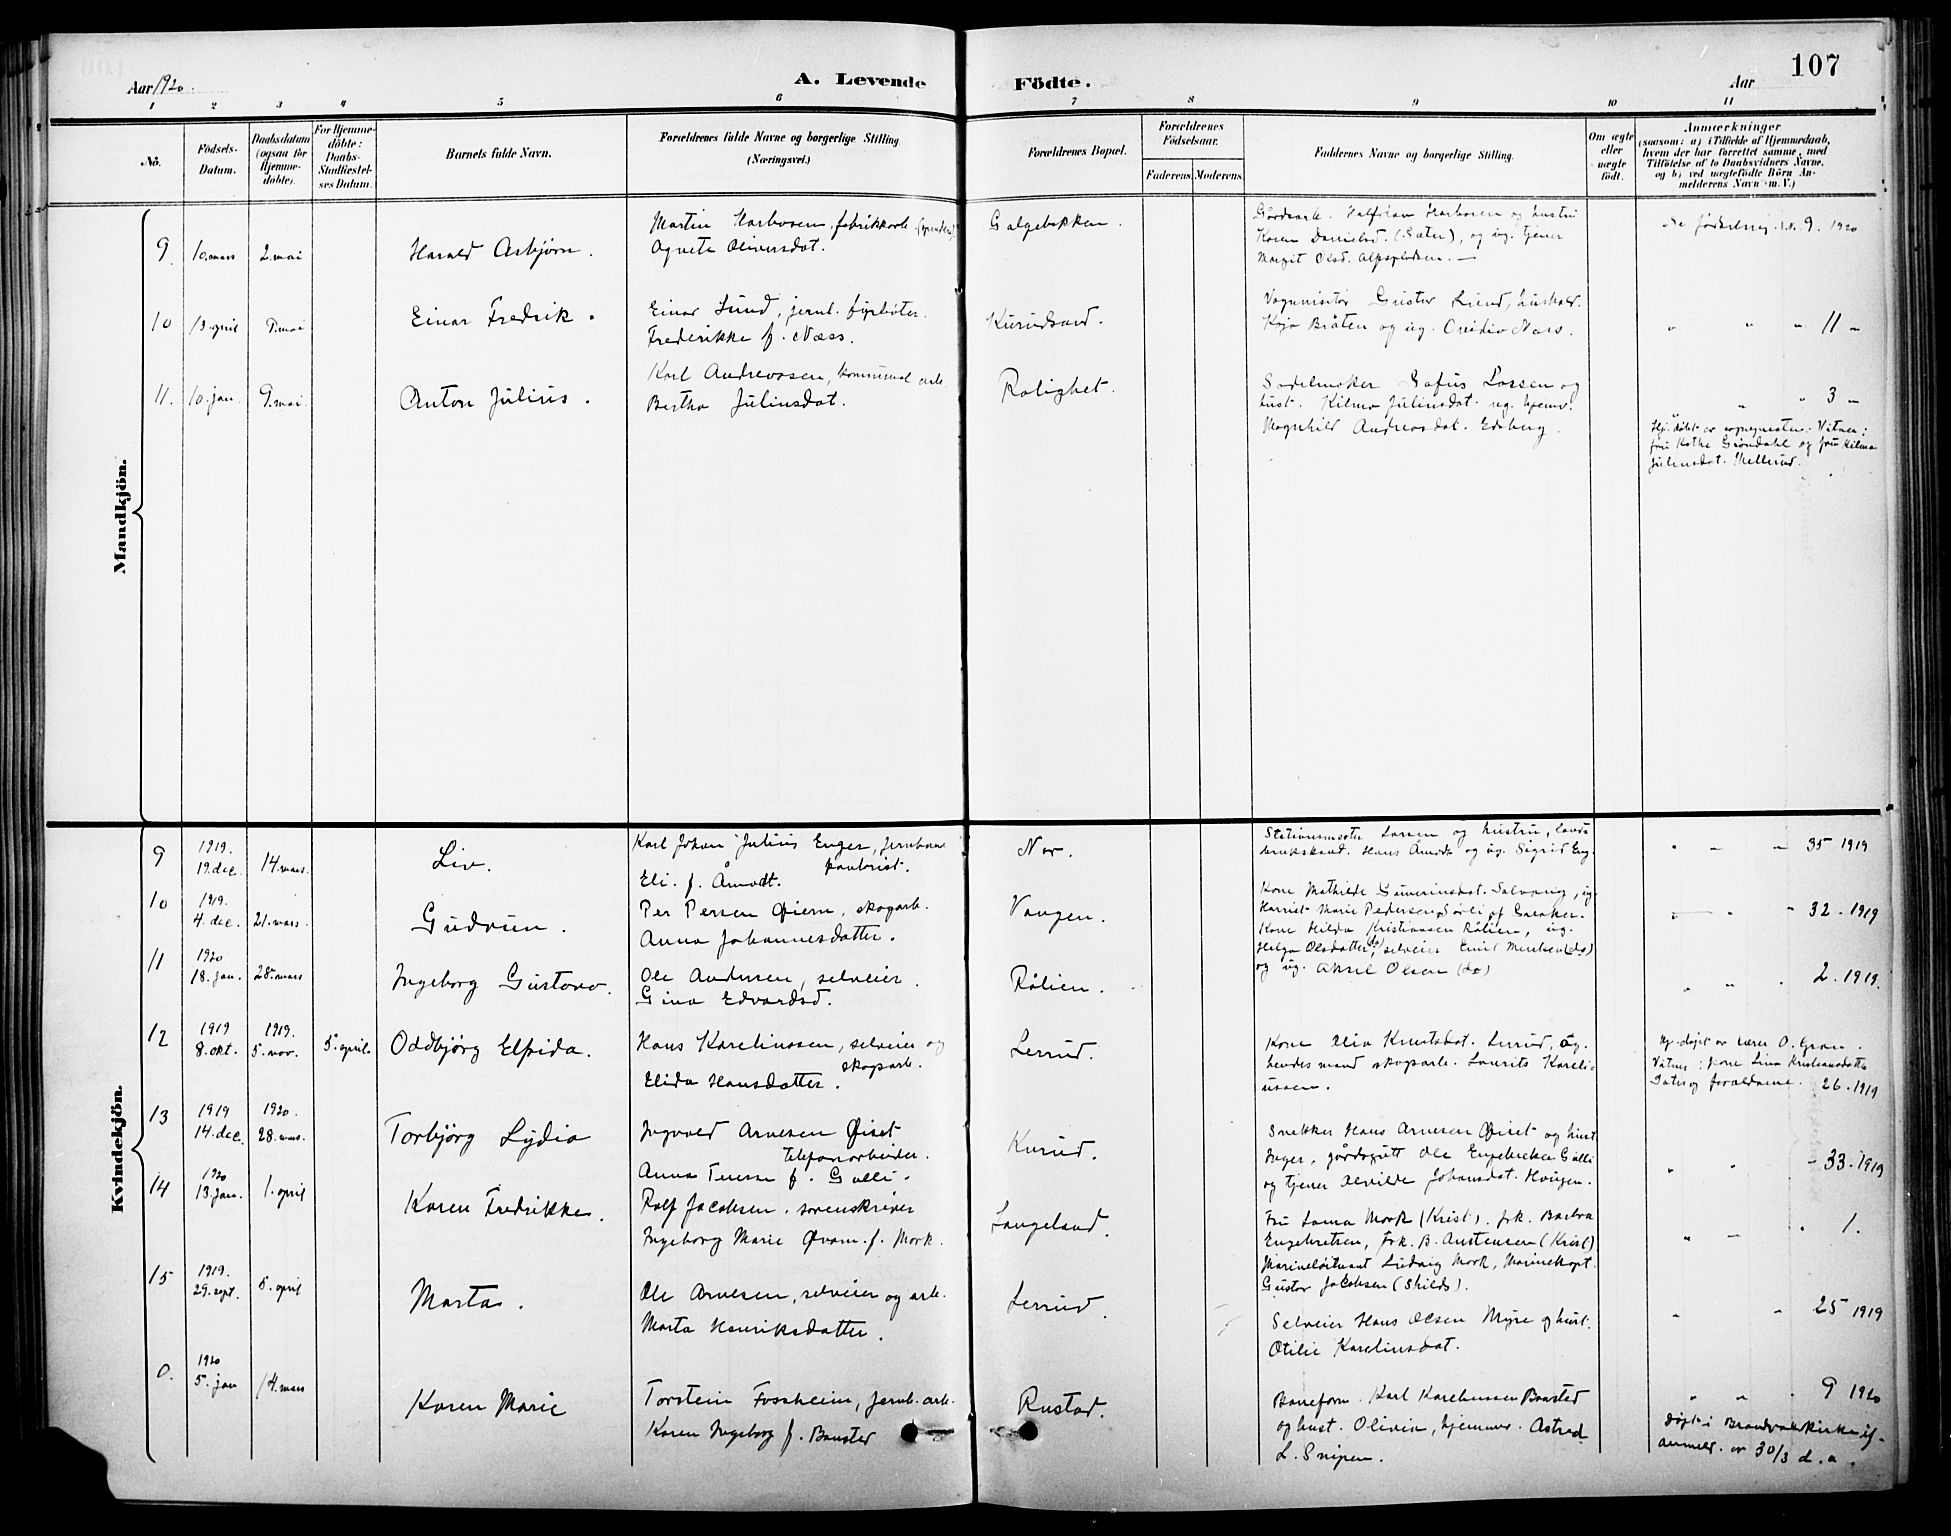 107
Aar 1920.
A. Levende Födte.
Aar
1 2 3 4 5 6 7 8 9 10 11
No.
Födsels-Datum.
Daabsdatum (ogsaa for Hjemme-döbte).
For Hjemme-döbte: Daabs-Stadfæstel-ses Datum.
Barnets fulde Navn.
Forældrenes fulde Navne og borgerlige Stilling (Næringsvei.)
Forældrenes Bopæl.
Forældrenes Födselsaar.
Faderens.
Moderens.
Faddernes Navne og borgerlige Stilling.
Om ægte eller uægte födt.
Anmærkninger
(saasom: a) i Tilfælde af Hjemmedaab,
hvem der har forrettet samme, med
Tilföielse af to Daabsvidners Navne,
og b) ved uægtefödte Börn An-
melderens Navn m. V.)
Mandkjön.
9. 10. mars 2. mai
Harald Asbjørn.
Martin Harbosen, fabrikkarb.
Agnete Oliversdat.
Galgebakken.
Gårdsarb. Halfdan Harbosen og hustru
Karen Danielsd. (Sæter), og ug. tjener
Margit Olsd.
Se fødselsreg. no. 9. 1920
10 13. april 9. mai
Einar Fredrik.
Einar Lund, jernb. fyrbøter.
Frederikke f. Næss.
Kurudsand.
Vognvisitør Gustav Lund, hushold.
Kaja Bråten og ug. Ovidia Næss.
" " " 11 -
11. 10. jan. 9. mai
Anton Julius.
Karl Andreassen, kommunal arb.
Bertha Juliusdat.
Rolighet.
Sadelmaker Sofus Larsen og
hust. Kilma Juliusdat. ug. hjemv.
Magnhild Andreasdat. Edsberg.
" " 3 -
Hj. døbt av sognepresten. Vitner:
fru Kathe Grøndahl og fru Kilma
Juliusdat. Mellerud.
Kvindekjön.
9 1919. 19. dec. 14. mars.
Liv.
Karl Johan Julius Enger, jernbane
kontorist.
Eli. f. Åmodt.
Nor.
Stationsmester Larsen og hustru, lands
brukskand. Hans Åmodt og ug. Sigrid Eng.
" " " 35 1919
10 1919. 4. dec. 21. mars.
Gudrun.
Per Persen Øiern, skogarb.
Anna Johannesdatter.
Vangen.
Kone Mathilde Severinsdat. Solvang, ug.
Harriet Marie Pedersen Sørli af Greaker.
" " " 32. 1919
11 1920 18. jan. 28. mars
Ingeborg Gustava.
Ole Andersen, selveier.
Gina Edvardsd.
Rålien.
Kone Hilda Kristiansen Rålien, ug.
Helga Olsdatter (ds), selveier Emil Mentsen (ds)
og ug. Aksel Olsen (ds)
" " " 2. 1919.
12 1919 8. okt. 1919. 5. nov. 5. april.
Oddbjørg Elfrida.
Hans Karelinssen, selveier og
skogsarb.
Elida Hansdatter.
Lerrud.
Kone Olia Knutsdat. Lerrud, og
hendes mand skogsarb. Laurits Kareli-
ussen.
Hj. døpt av lærer O. Gran.
Vitner: kone Lina Kristiansdatter
Sater og forældrene. 26. 1919
13 1919 14. dec. 1920. 28. mars.
Torbjørg Lydia
Ingvald Arnesen Øiset
telefonarbeider.
Anna Terese f. Gulli.
Kurud.
Snekker Hans Arnesen Øiset og hust.
Inger, gårdsgutt Ole Engebrekt Gulli
og tjener Alvilde Johansdat. Haugen.
" " - 33. 1919
14 1920 13. jan. 1. april
Karen Fredrikke.
Rolf Jacobsen, sorenskriver
Ingeborg Marie Øvam. f. Mork.
Langeland.
Fru Laura Mork (Krist). frk. Barbra
Engebretsen, frk. B. Austensen (Krist)
Marineløitnant Ludvig Mork, Marinekapt.
Gustav Jacobsen (Skilds).
" - " 1.
15 1919. 29. sept. 5. april
Marta.
Ole Arnesen, selveier og arb.
Marta Henriksdatter.
Lerrud.
Selveier Hans Olsen Myre og hust.
Otilie Karelinsdat.
" " 25 1919
0. 1920 5. jan 14. mars
Karen Marie
Torstein Fossheim, jernb. arb.
Karen Ingeborg f. Bansted
Rustad.
Baneform. Karl Karelinssen Bansted
og hust. Olivia, hjemmev. Astrid
L. Snipen.
" " " 9 1920
døpt i Brandvold kirke if.
anmeld. av 30/3 d. a.